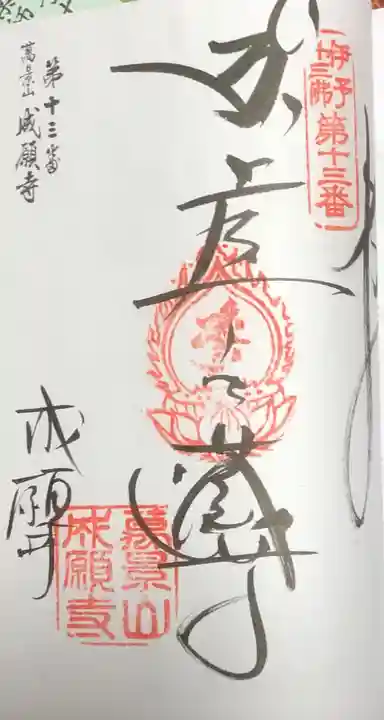 伊予
十三佛
第十三番
虚空蔵
成願寺
萬景山
成願寺
第十三番
萬景山 成願寺